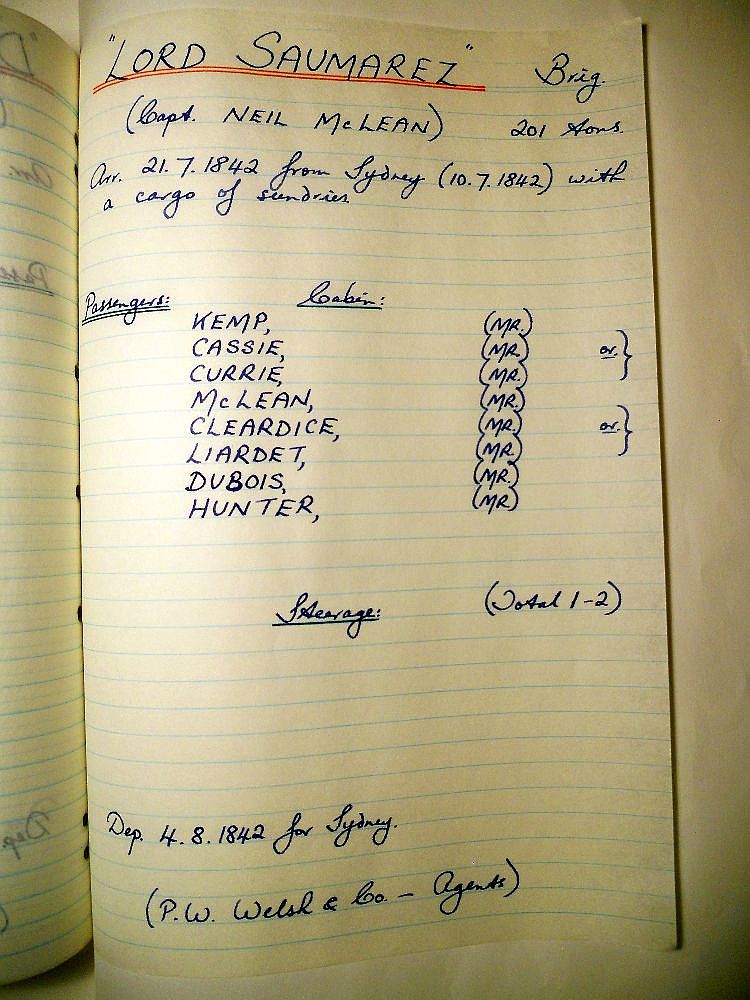 "LORD SAUMAREZ" Brig.
(Capt. NEIL McLEAN) 201 tons.
Arr. 21.7.1842 from Sydney (10.7.1842) with
a cargo of sundries
Passengers: Cabin:
KEMP, (MR.)
CASSIE, (MR.) or. }
CURRIE, (MR.)
McLEAN, (MR.)
CLEARDICE, (MR.) or. }
LIARDET, (MR.)
DUBOIS, (MR.)
HUNTER, (MR)
Stearage: (Total 1-2)
Dep. 4.8.1842 for Sydney.
(P.W. Welsh & Co. - Agents)